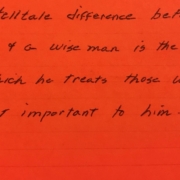 telltale difference
& a wise man is the
he treats those
important to him